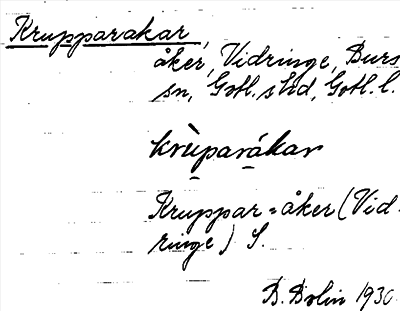 Krupparakar,
åker, Vidringe, Burs
sn, Gotl. s hd, Gotl. l.
krùparákar
Kruppar-åker (Vid-
ringe) S.
B. Bolin 1930